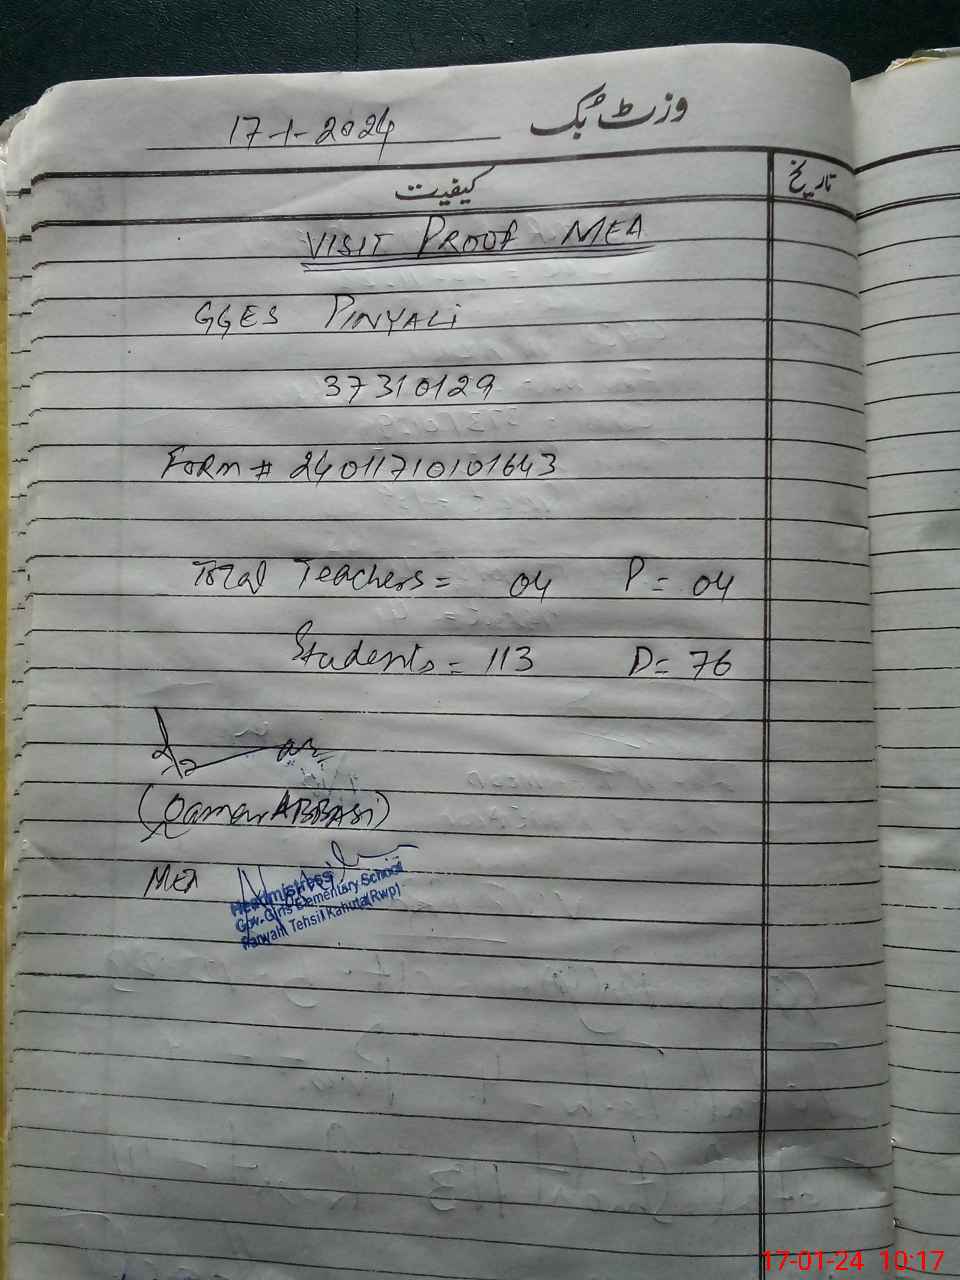 وزٹ بُک
17-1-2024
کیفیت تاریخ
VISIT PROOF MEA
GGES PINYALi
37310129
FORM # 24011710101643
Total Teachers = 04 P = 04
Students = 113 D= 76
(Qamar ABBASi)
MEA
Headmistress
Gov. Girls Elementary School
Tehsil Kahuta(Rwp)
17-01-24 10:17